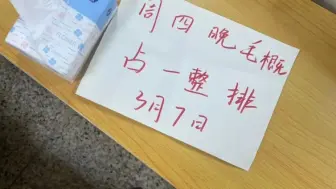 周四晚毛概
占一整排
3月7日